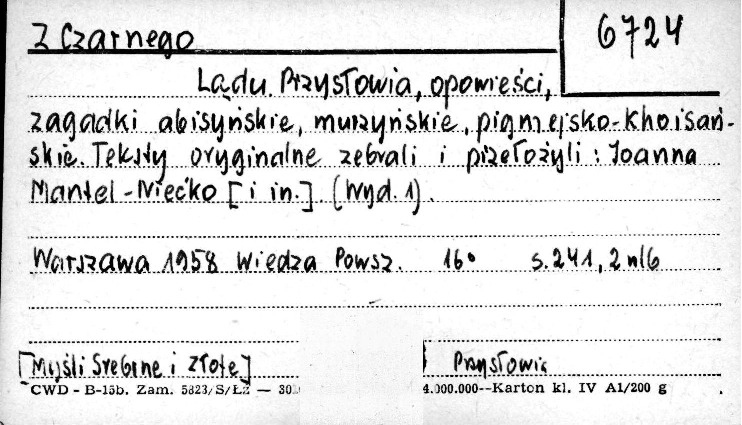 Z Czarnego
6724
Lądu. Przysłowia, opowieści,
zagadki abisyńskie, murzyńskie, pigmejsko-khoisań-
skie. Teksty oryginalne zebrali i przełożyli: Joanna
Mantel-Niećko [i in.]. (Wyd. 1).
Warszawa 1958 Wiedza Powsz. 16° s. 241, 2 nlb
[Myśli Srebrne i Złote]
Przysłowia
CWD - B-15b. Zam. 5823/S/ŁŻ — 30
4.000.000--Karton kl. IV A1/200 g